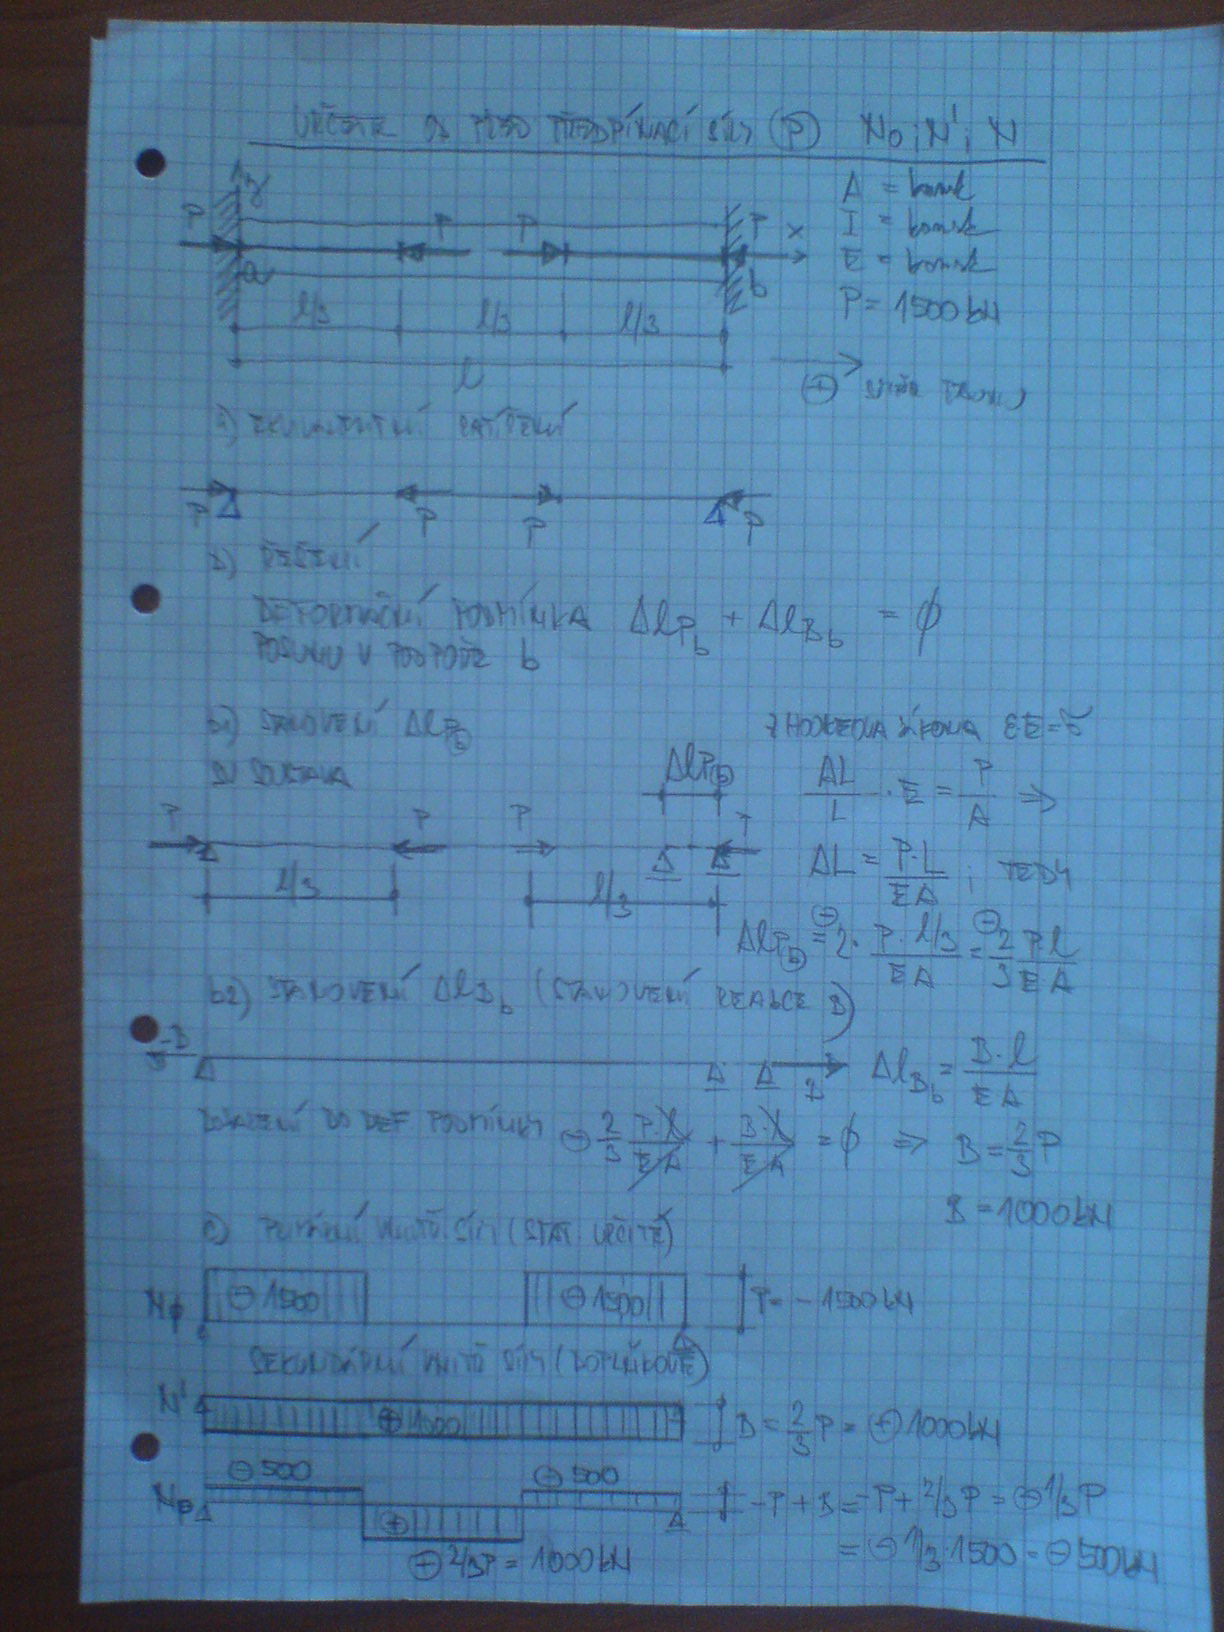 URČETE OD PŘEDPÍNACÍ SÍLY (P) N0; N'; N
A = konst
I = konst
E = konst
P = 1500 kN
z
P P P P x
a b
l/3 l/3 l/3
l
⊕
a) EKVIVALENTNÍ ZATÍŽENÍ
P P P P
b) ŘEŠENÍ
DEFORMAČNÍ PODMÍNKA ΔlPb + ΔlBb = ϕ
POSUNU V PODPOŘE b
b1) STANOVENÍ ΔlPb
Z HOOKEOVA ZÁKONA
SOUSTAVA
ΔlPb
ΔL/L · E = P/A ⇒
P P P P
l/3 l/3
ΔL = P·L/EA ; TEDY
ΔlPb = ⊖ 2 · P·l/3/EA = ⊖ 2/3 Pl/EA
b2) STANOVENÍ ΔlBb (STANOVENÍ REAKCE B)
-B B ΔlBb = B·l/EA
DOSAZENÍ DO DEF. PODMÍNKY ⊖ 2/3 P·l/EA + B·l/EA = ϕ ⇒ B = 2/3 P
B = 1000 kN
c) PRIMÁRNÍ VNITŘ. SÍLY (STAT. URČITÉ)
Nϕ ⊖ 1500 ⊖ 1500 P = - 1500 kN
SEKUNDÁRNÍ VNITŘ SÍLY (DOPLŇKOVÉ)
N' ⊕ 1000 B = 2/3 P = ⊕ 1000 kN
⊖ 500 ⊖ 500
NP ⊕ -P + B = -P + 2/3 P = ⊖ 1/3 P
⊕ 2/3 P = 1000 kN
= ⊖ 1/3 · 1500 = ⊖ 500 kN